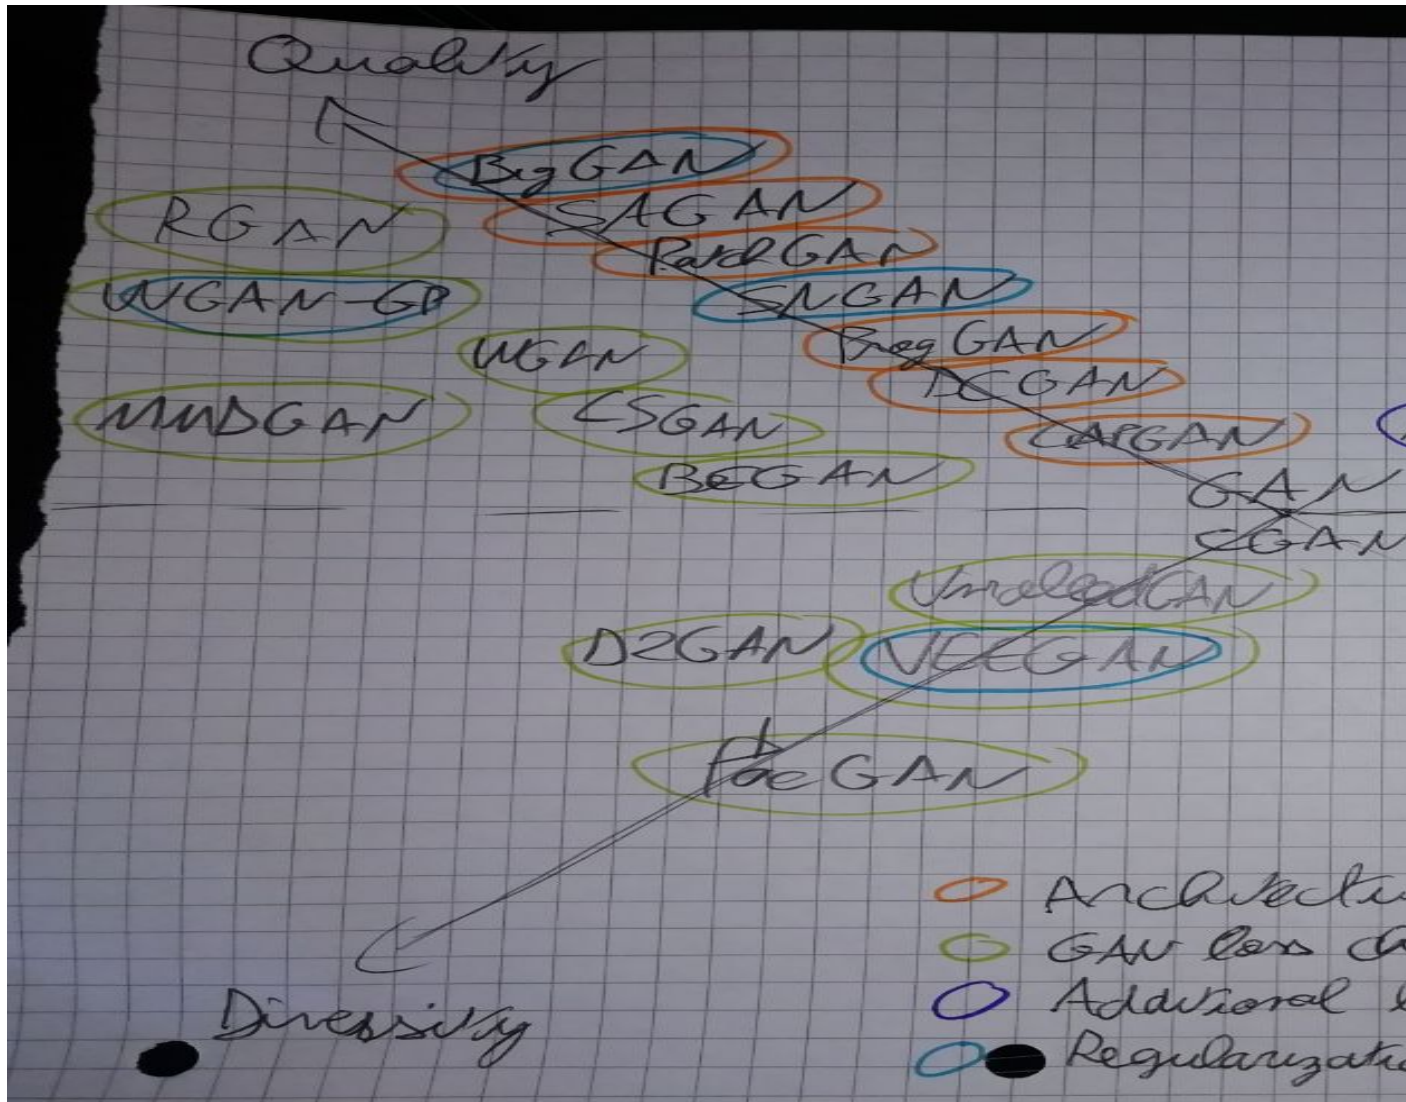 Quality
BigGAN
SAGAN
RGAN
PatchGAN
WGAN-GP
SNGAN
ProgGAN
WGAN
DCGAN
MMDGAN
LSGAN
CAPGAN
BEGAN
GAN
CGAN
UnrolledGAN
D2GAN
VEEGAN
PacGAN
Architectu
GAN loss ch
Additional l
Regularizatio
Diversity